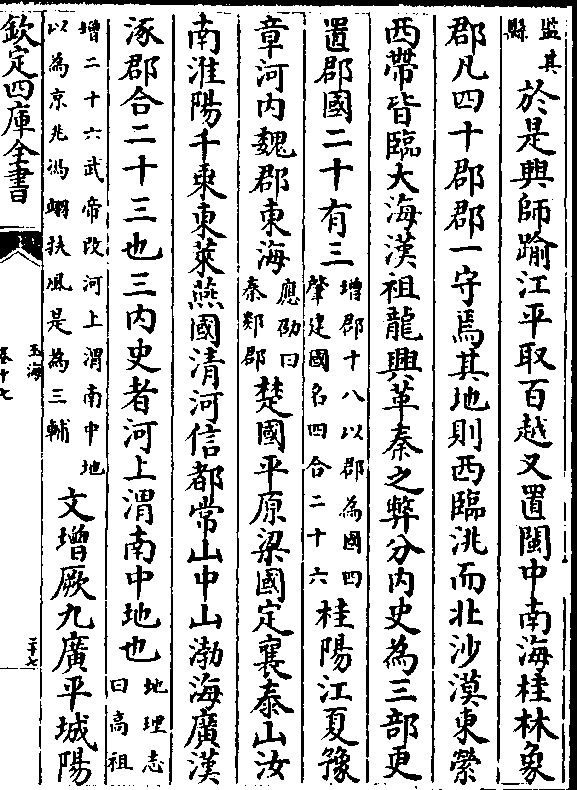 監其
縣
於是興師踰江平取百越又置閩中南海桂林象
郡凡四十郡郡一守焉其地則西臨洮而北沙漠東縈
西帶皆臨大海漢祖龍興革秦之弊分内史為三部更
置郡國二十有三
增郡十八以郡為國四
肇建國名四合二十六
桂陽江夏豫
章河内魏郡東海
應劭曰
秦郯郡
楚國平原梁國定襄泰山汝
南淮陽千乗東萊燕國清河信都常山中山渤海廣漢
涿郡合二十三也三内史者河上渭南中地也
地理志
曰高祖
增二十六武帝改河上渭南中地
以為京兆馮翊扶風是為三輔
文增厥九廣平城陽
欽定四庫全書
玉海
卷十七
二十七